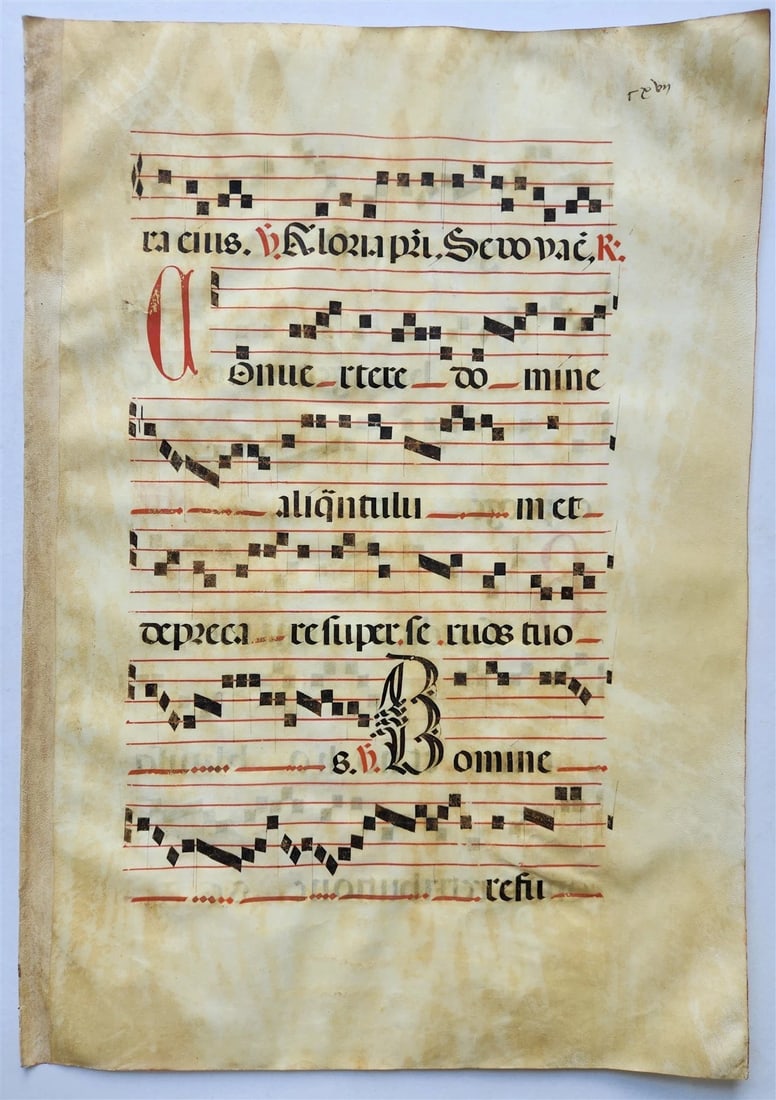 ra eius. ℣. Gloria pr̃i. Seuouaẽ, R:
Conue rtere do mine
aliq̃ntulu m et
depreca re super se ruos tuo
s. ℣. Domine
refu